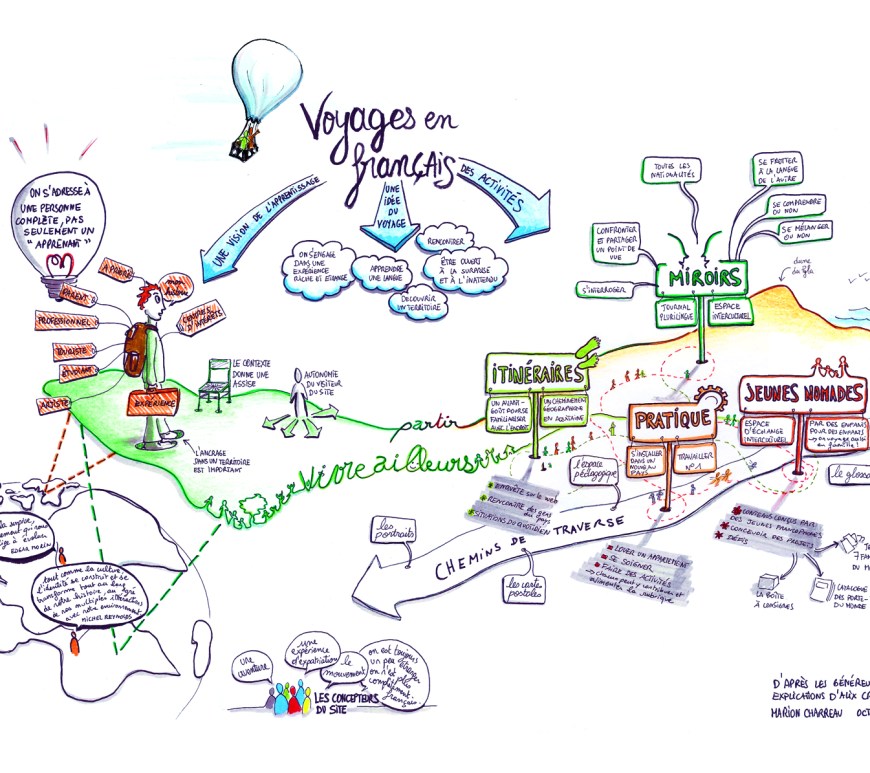 Voyages en
français
UNE VISION DE L'APPRENTISSAGE
UNE
IDÉE
DU
VOYAGE
DES ACTIVITÉS
ON S'ENGAGE
DANS UNE
EXPÉRIENCE
RICHE ET ÉTRANGE
APPRENDRE
UNE LANGUE
RENCONTRER
ÊTRE OUVERT
À LA SURPRISE
ET À L'INATTENDU
DÉCOUVRIR
UN TERRITOIRE
ON S'ADRESSE À
UNE PERSONNE
COMPLÈTE, PAS
SEULEMENT UN
"APPRENANT"
PARENT
PROFESSIONNEL
TOURISTE
ÉTUDIANT
ARTISTE
CENTRES
D'INTÉRÊTS
EXPÉRIENCE
LE CONTEXTE
DONNE UNE
ASSISE
AUTONOMIE
DU VISITEUR
DU SITE
L'ANCRAGE
DANS UN TERRITOIRE
EST IMPORTANT
partir
Vivre ailleurs
TOUTES LES
NATIONALITÉS
SE FROTTER
À LA LANGUE
DE L'AUTRE
SE COMPRENDRE
OU NON
SE MÉLANGER
OU NON
CONFRONTER
ET PARTAGER
UN POINT DE
VUE
S'INTERROGER
MIROIRS
JOURNAL
PLURILINGUE
ESPACE
INTERCULTUREL
dune
du Pyla
ITINÉRAIRES
UN AVANT-
GOÛT POUR SE
FAMILIARISER
AVEC L'ENDROIT
UN CHEMINEMENT
GÉOGRAPHIQUE
EN AQUITAINE
PRATIQUE
S'INSTALLER
DANS UN
NOUVEAU
PAYS
TRAVAILLER
N°1
JEUNES NOMADES
ESPACE
D'ÉCHANGE
INTERCULTUREL
PAR DES ENFANTS
POUR DES ENFANTS
on voyage aussi
en famille!
l'espace
pédagogique
ENQUÊTE SUR LE WEB
RENCONTRE DES GENS
DU PAYS
SITUATIONS DU QUOTIDIEN
CHEMINS DE TRAVERSE
les
portraits
les cartes
postales
LOUER UN APPARTEMENT
SE SOIGNER
FAIRE DES ACTIVITÉS
chacun peut y contribuer et
alimenter la rubrique
CONTENUS CONÇUS PAR
DES JEUNES FRANCOPHONES
CONCEVOIR DES PROJETS
DÉFIS
le gloss
LA BOÎTE
À CONSIGNES
DU M
CATALOGUE
DES PORTE-
DU MONDE
EDGAR MORIN
tout comme la culture,
l'identité se construit et se
transforme tout au long
de notre histoire, au gré
de nos multiples interactions
avec notre environnement
MICHEL REYNOLDS
une
aventure
une
expérience
d'expatriation
le
mouvement
on est toujours
un peu étranger
on n'est plus
complètement
français.
LES CONCEPTEURS
DU SITE
D'APRÈS LES GÉNÉREU
EXPLICATIONS D'ALIX C
MARION CHARREAU OCT